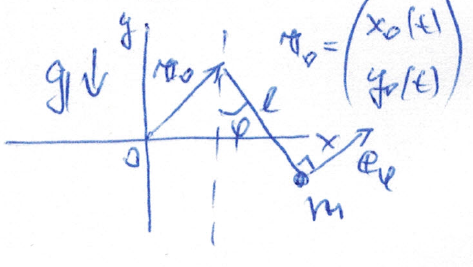 y
g ↓
r₀
r₀ = ( x₀(t)
y₀(t) )
l
φ
0
x
e_φ
m